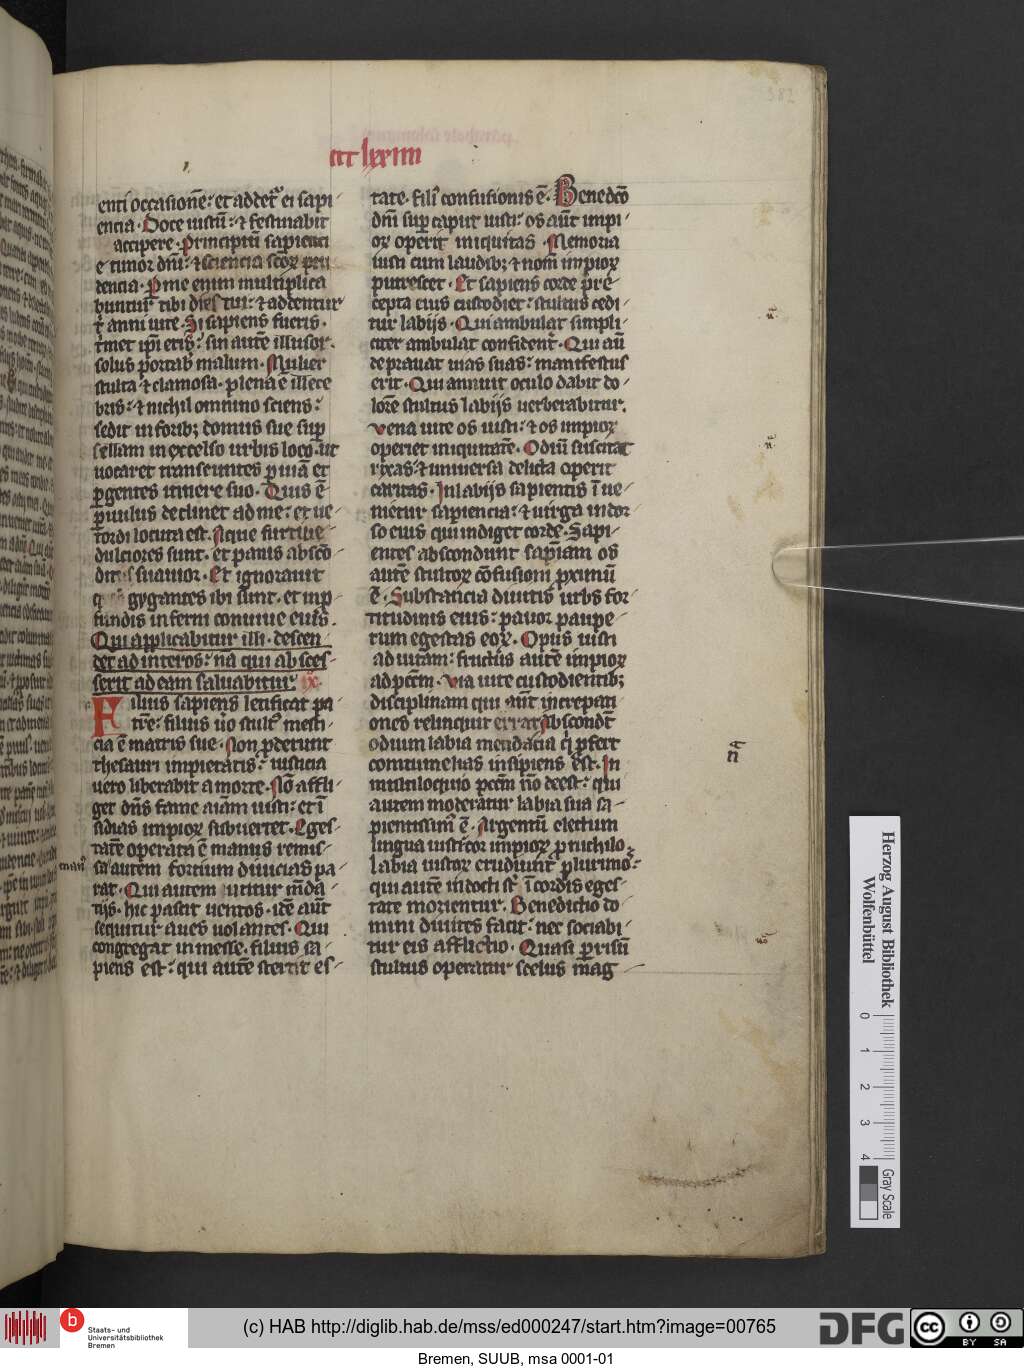 ccclxxiiii
382
enti occasionē: et addet᷑ ei sapi
encia. Doce iustū: ⁊ festinabit
accipere. Principiū sapienci
e timor dn̄i: ⁊ sciencia scōꝝ pru
dencia. Per me enim multiplica
buntur tibi dies tui: ⁊ addentur
t᷑ anni uite. Si sapiens fueris.
t᷑met ip̄i eris: sin autē illusor.
solus portab̄ malum. Mulier
stulta ⁊ clamosa. plena ē illece
bris: ⁊ nichil omnino sciens:
sedit in forib; domus sue sup̄
sellam in excelso urbis loco. ut
uocaret transeuntes ꝑ uiā et
ꝑgentes itinere suo. Quis ē
ꝑuulus declinet ad me: et ue
cordi locuta est. Aque furtiue
dulciores sunt. et panis abscō
ditus suauior. Et ignorauit
gygantes ibi sunt. et in ꝓ
fundis inferni conuiue eius.
Qui applicabitur illi. descen
det ad inferos: nā qui absces
serit ad eam saluabitur. ix.
Filius sapiens letificat pa
trē: filius uo stult᷑ mesti
cia ē matris sue. Non ꝓderunt
thesauri impietatis: iusticia
uero liberabit a morte. Nō affli
get dn̄s fame aīam iusti: et ī
sidias impioꝝ subuertet. Eges
tatē operata ē manus remis
sa autem fortium diuicias pa
rat. Qui autem nititur m̄da
tijs. hic pascit uentos. idē aūt
sequitur aues uolantes. Qui
congregat in messe. filius sa
piens est: qui autē stertit es
tate. fili᷑ confusionis ē. Benedcō
dn̄i sup̄ caput iusti: os aūt impi
oꝝ operit iniquitas. Memoria
iusti cum laudib; ⁊ nom̄ impioꝝ
putrescet. Et sapiens corde pre
cepta eius custodiet: stultus cedi
tur labijs. Qui ambulat simpli
citer ambulat confident᷑. Qui aū
deprauat uias suas: manifestus
erit. Qui annuit oculo dabit do
lorē stultus labijs uerberabitur.
Vena uite os iusti: ⁊ os impioꝝ
operiet iniquitatē. Odiū suscitat
rixas: ⁊ uniuersa delicta operit
caritas. In labijs sapientis ī ue
nietur sapiencia: ⁊ uirga in dor
so eius qui indiget corde. Sapi
entes abscondunt sapīam os
autē stultoꝝ cōfusioni ꝓximū
ē. Substancia diuitis urbs for
titudinis eius: pauor paupe
rum egestas eoꝝ. Opus iusti
ad uitam: fructus autē impioꝝ
ad pctm̄. Via uite custodientib;
disciplinam qui aūt increpati
ones relinquit errat. Abscondūt
odium labia mendacia q̄ ꝓfert
contumelias insipiens est. In
multiloquio pctm̄ nō deest: qui
autem moderatur labia sua sa
pientissim᷑ ē. Argentū electum
lingua iusti: cor impioꝝ ꝓ nichilo.
labia iustoꝝ erudiunt plurimos:
qui autē indocti st̄ ī cordis eges
tate morientur. Benedictio do
mini diuites facit: nec sociabi
tur eis afflictio. Quasi ꝑ risū
stultus operatur scelus mag
Herzog August Bibliothek
Wolfenbüttel
0 1 2 3 4
Gray Scale
b
Staats- und
Universitätsbibliothek
Bremen
(c) HAB http://diglib.hab.de/mss/ed000247/start.htm?image=00765
DFG
cc BY SA
Bremen, SUUB, msa 0001-01